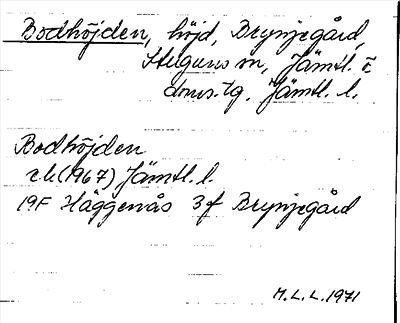 Bodhöjden, höjd, Brynjegård,
Stuguns sn, Jämtl. ö
doms.tg, Jämtl. l.
Bodhöjden
rk (1967) Jämtl. l.
19F Häggenås 3 f Brynjegård
M.L.L. 1971